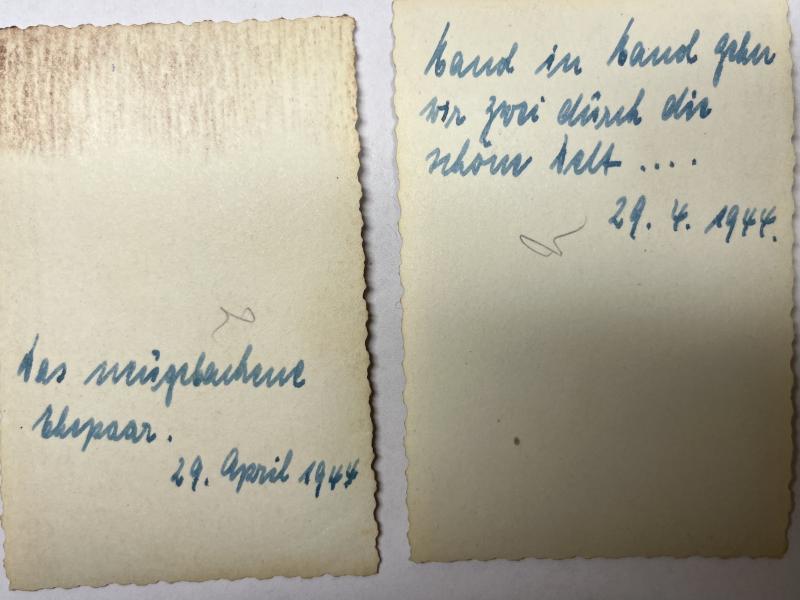 Das neugebackene
Ehepaar.
29. April 1944
Hand in Hand gehen
wir zwei durch die
schöne Welt ....
29. 4. 1944.